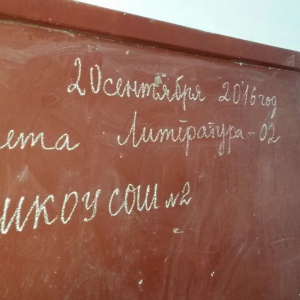 20 сентября 2016 год
ета Литература-02
ИКОУ СОШ №2